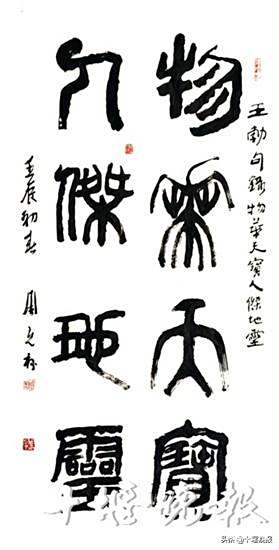 王勃句錄物華天寶人傑地靈
物華天寶
人傑地靈
壬辰初春
周
十堰晚报
头条@十堰晚报